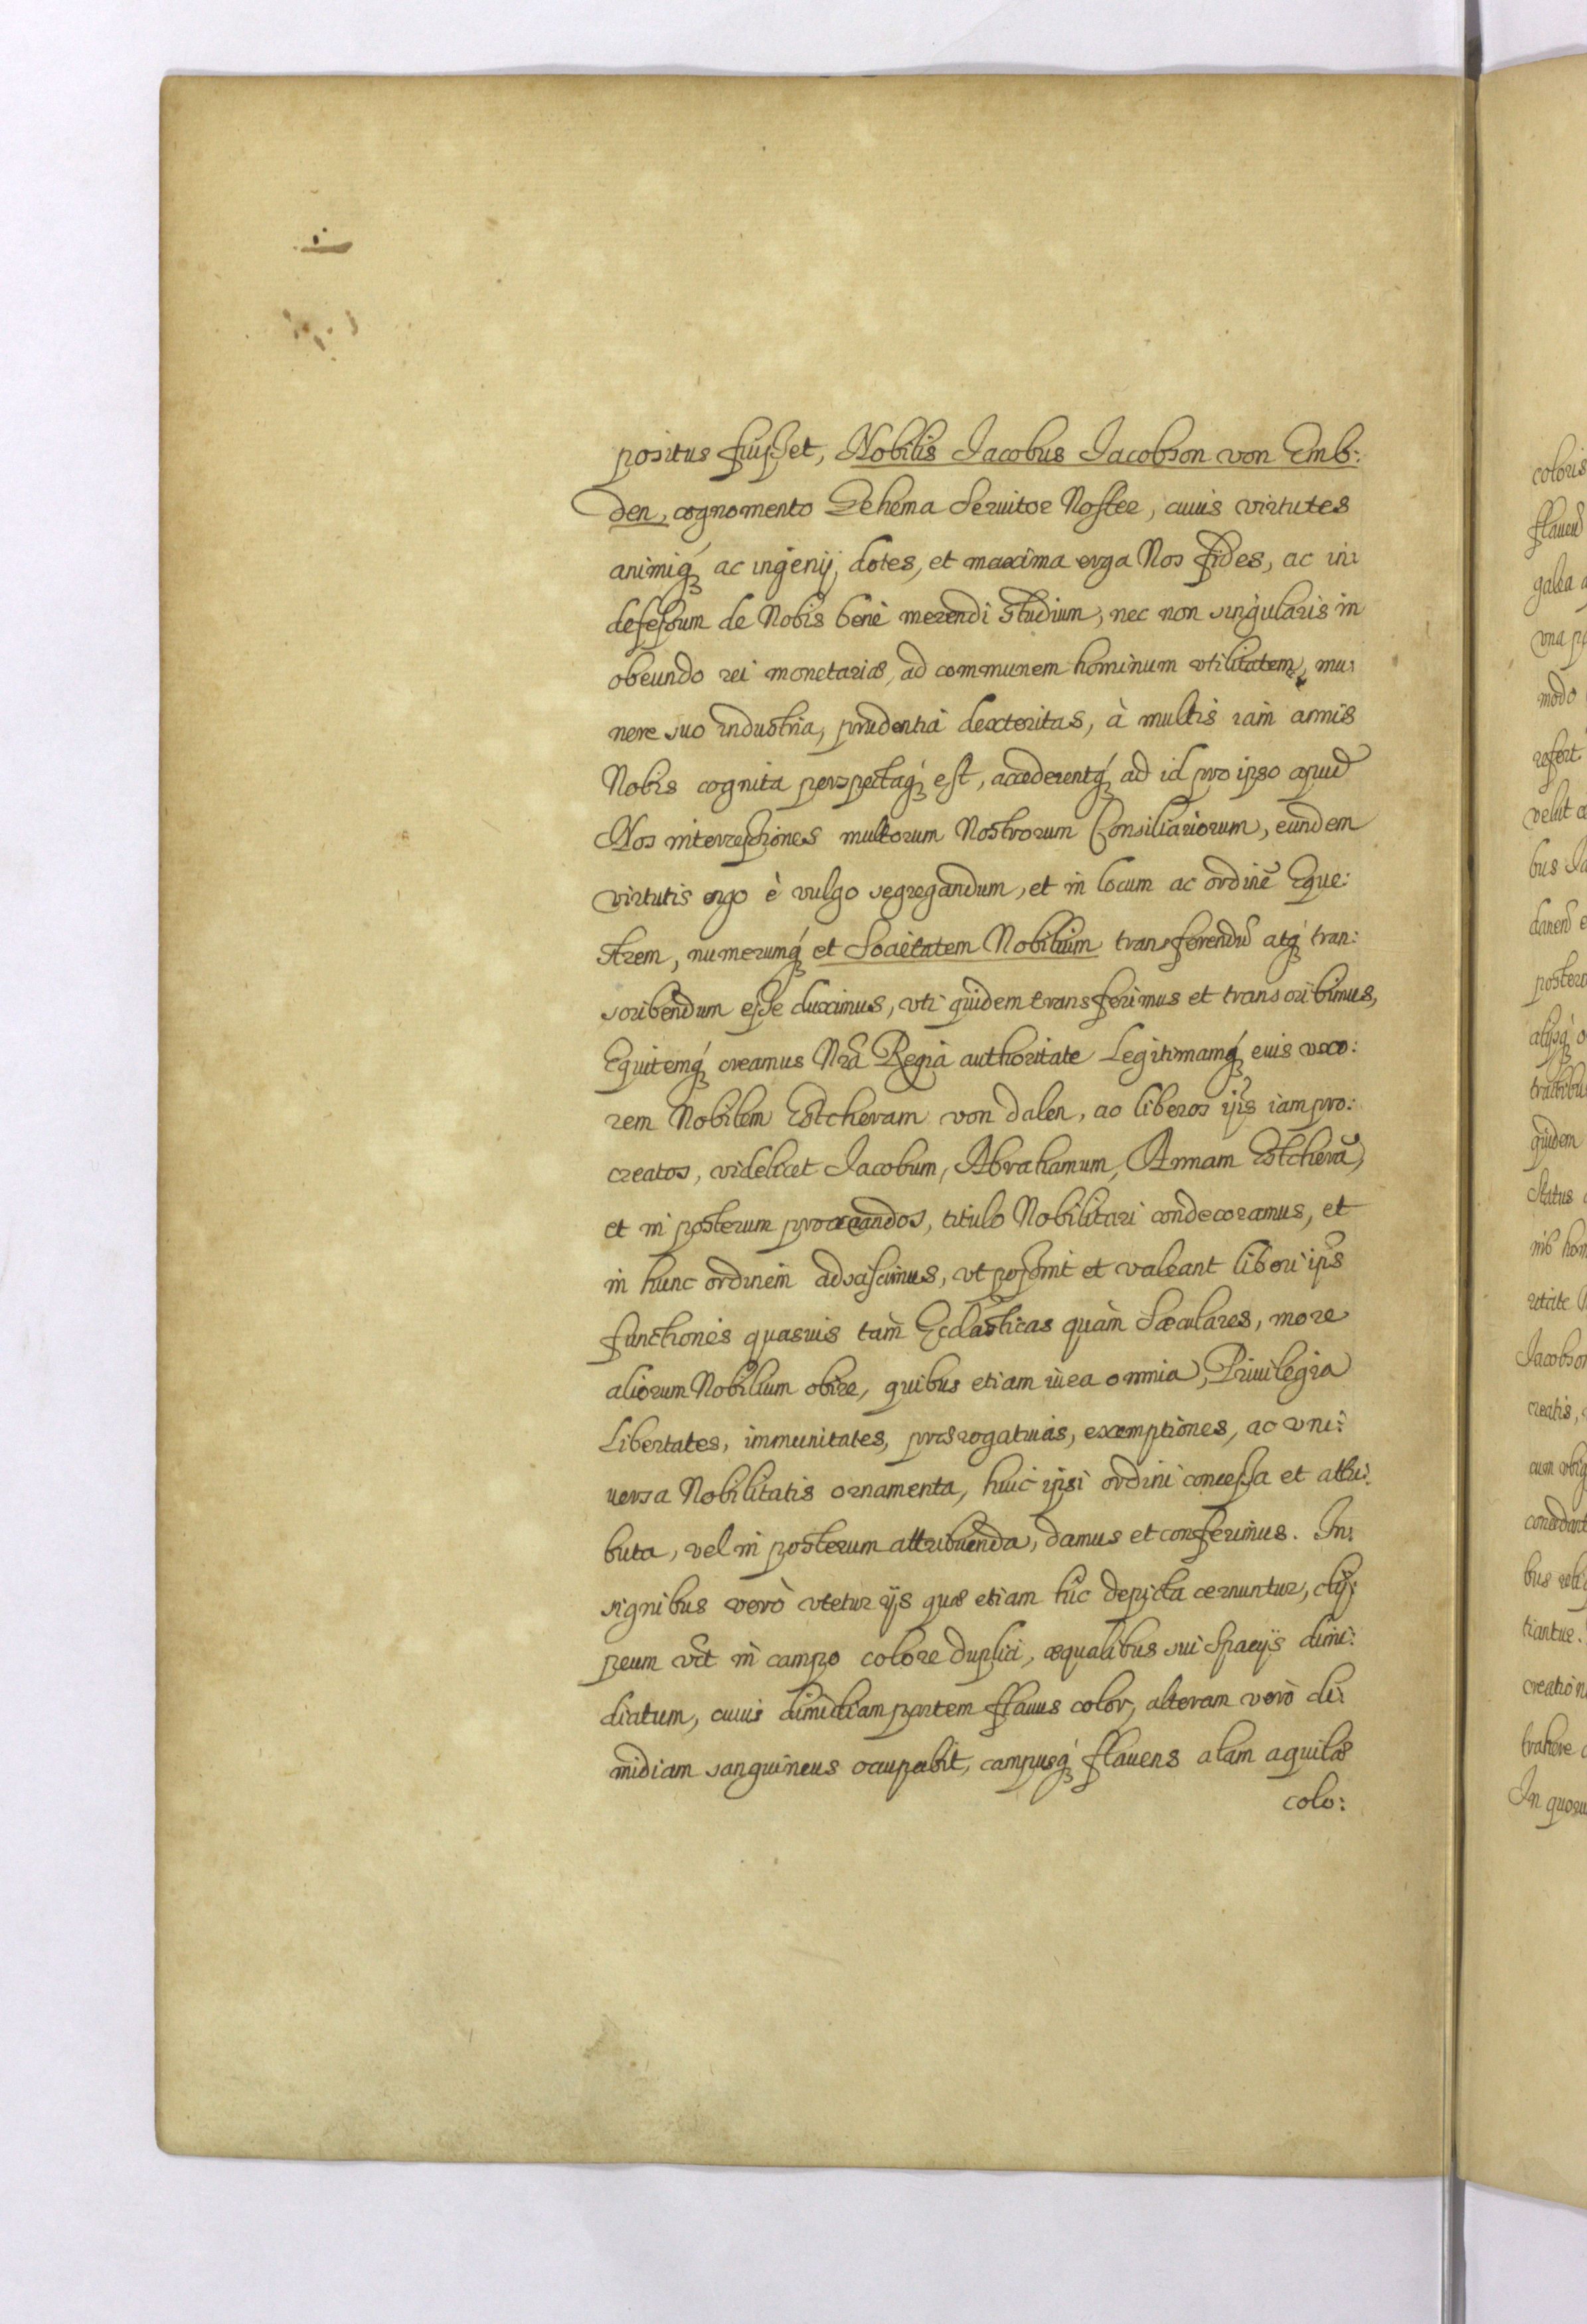 positus fuisset, Nobilis Jacobus Jacobson von Emb:
den, cognomento Gehema Seruitor Noster, cuius virtutes
animiq́ꝫ ac ingenij dotes, et maxima erga Nos fides, ac in:
defessum de Nobis benè merendi studium, nec non singularis in
obeundo rei monetariæ, ad communem hominum vtilitatem, mu:
nere suo industria, prudentia dexteritas, à multis iam annis
Nobis cognita perspectaq́ꝫ est, accederentq́ꝫ ad id pro ipso apud
Nos intercessiones multorum Nostrorum Consiliariorum, eundem
virtutis ergo è vulgo segregandum, et in locum ac ordinē Eque:
strem, numerumq́ꝫ et Societatem Nobilium transferendū atq́ꝫ tran:
scribendum esse duximus, vti quidem transferimus et transcribimus,
Equitemq́ꝫ creamus Nrā Regia authoritate Legitimamq́ꝫ eius vxo:
rem Nobilem Estcheram von dalen, ac liberos ijs iam pro:
creatos, videlicet Jacobum, Abrahamum, Annam Estcherā,
et in posterum procreandos, titulo Nobilitari condecoramus, et
in hunc ordinem adsciscimus, vt possint et valeant liberi ips
functiones quasuis tam Ecclāsticas quàm Sæculares, more
aliorum Nobilium obire, quibus etiam iu ea omnia, Priuilegia
Libertates, immunitates, prærogatiuas, exemptiones, ac vni:
uersa Nobilitatis ornamenta, huic ipsi ordini concessa et attri:
buta, vel in posterum attribuenda, damus et conferimus. In:
signibus verò vtetur ijs quæ etiam hîc depicta cernuntur, cly:
peum vct in campo colore duplici, æqualibus sui spacijs dimi:
diatum, cuius dimidiam partem flauus color, alteram verò di:
midiam sanguineus occupabit, campusq́ꝫ flauens alam aquilæ
colo: